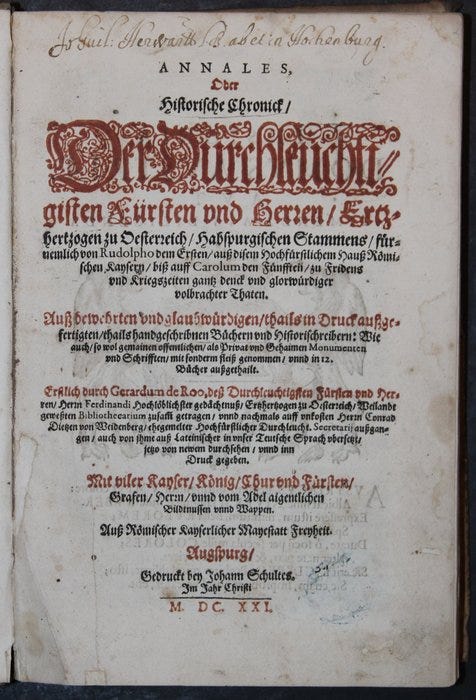 Jo: Guil: Herwarth habet in Hochenburg.
ANNALES,
Oder
Historische Chronick/
Der Durchleuchti-
gisten Fürsten vnd Herren/ Ertz-
hertzogen zu Oesterreich/ Habspurgischen Stammens/ für-
nemlich von Rudolpho dem Ersten/ auß disem Hochfürstlichem Hauß Römi-
schen Kaysern/ biß auff Carolum den Fünfften/ zu Fridens
vnd Kriegszeiten gantz denck vnd glorwürdiger
volbrachter Thaten.
Auß bewehrten vnd glaubwürdigen/ thails in Druck außge-
fertigten/ thails handgeschribnen Büchern vnd Historischreibern: Wie
auch/ so wol gemainen offentlichen/ als Privat vnd Gehaimen Monumenten
vnd Schrifften/ mit sonderm fleiß genommen/ vnnd in 12.
Bücher außgethailt.
Erstlich durch Gerardum de Roo, deß Durchleuchtigsten Fürsten vnd Her-
ren/ Herrn Ferdinandi Hochlöblichster gedächtnuß/ Ertzhertzogen zu Oesterreich/ Weilandt
gewesten Bibliothecarium zusam̃ getragen/ vnnd nachmals auff vnkosten Herrn Conrad
Dietzen von Weidenberg/ ehegemelter Hochfürstlicher Durchleucht. Secretarij außgan-
gen/ auch von jhme auß Latteinischer in vnser Teutsche Sprach vbersetzt/
jetzo von newem durchsehen/ vnnd inn
Druck gegeben.
Mit viler Kayser/ König/ Chur vnd Fürsten/
Grafen/ Herrn/ vnnd vom Adel aigentlichen
Bildnussen vnnd Wappen.
Auß Römischer Kayserlicher Mayestatt Freyheit.
Augspurg/
Gedruckt bey Johann Schultes.
Im Jahr Christi
M. DC. XXI.